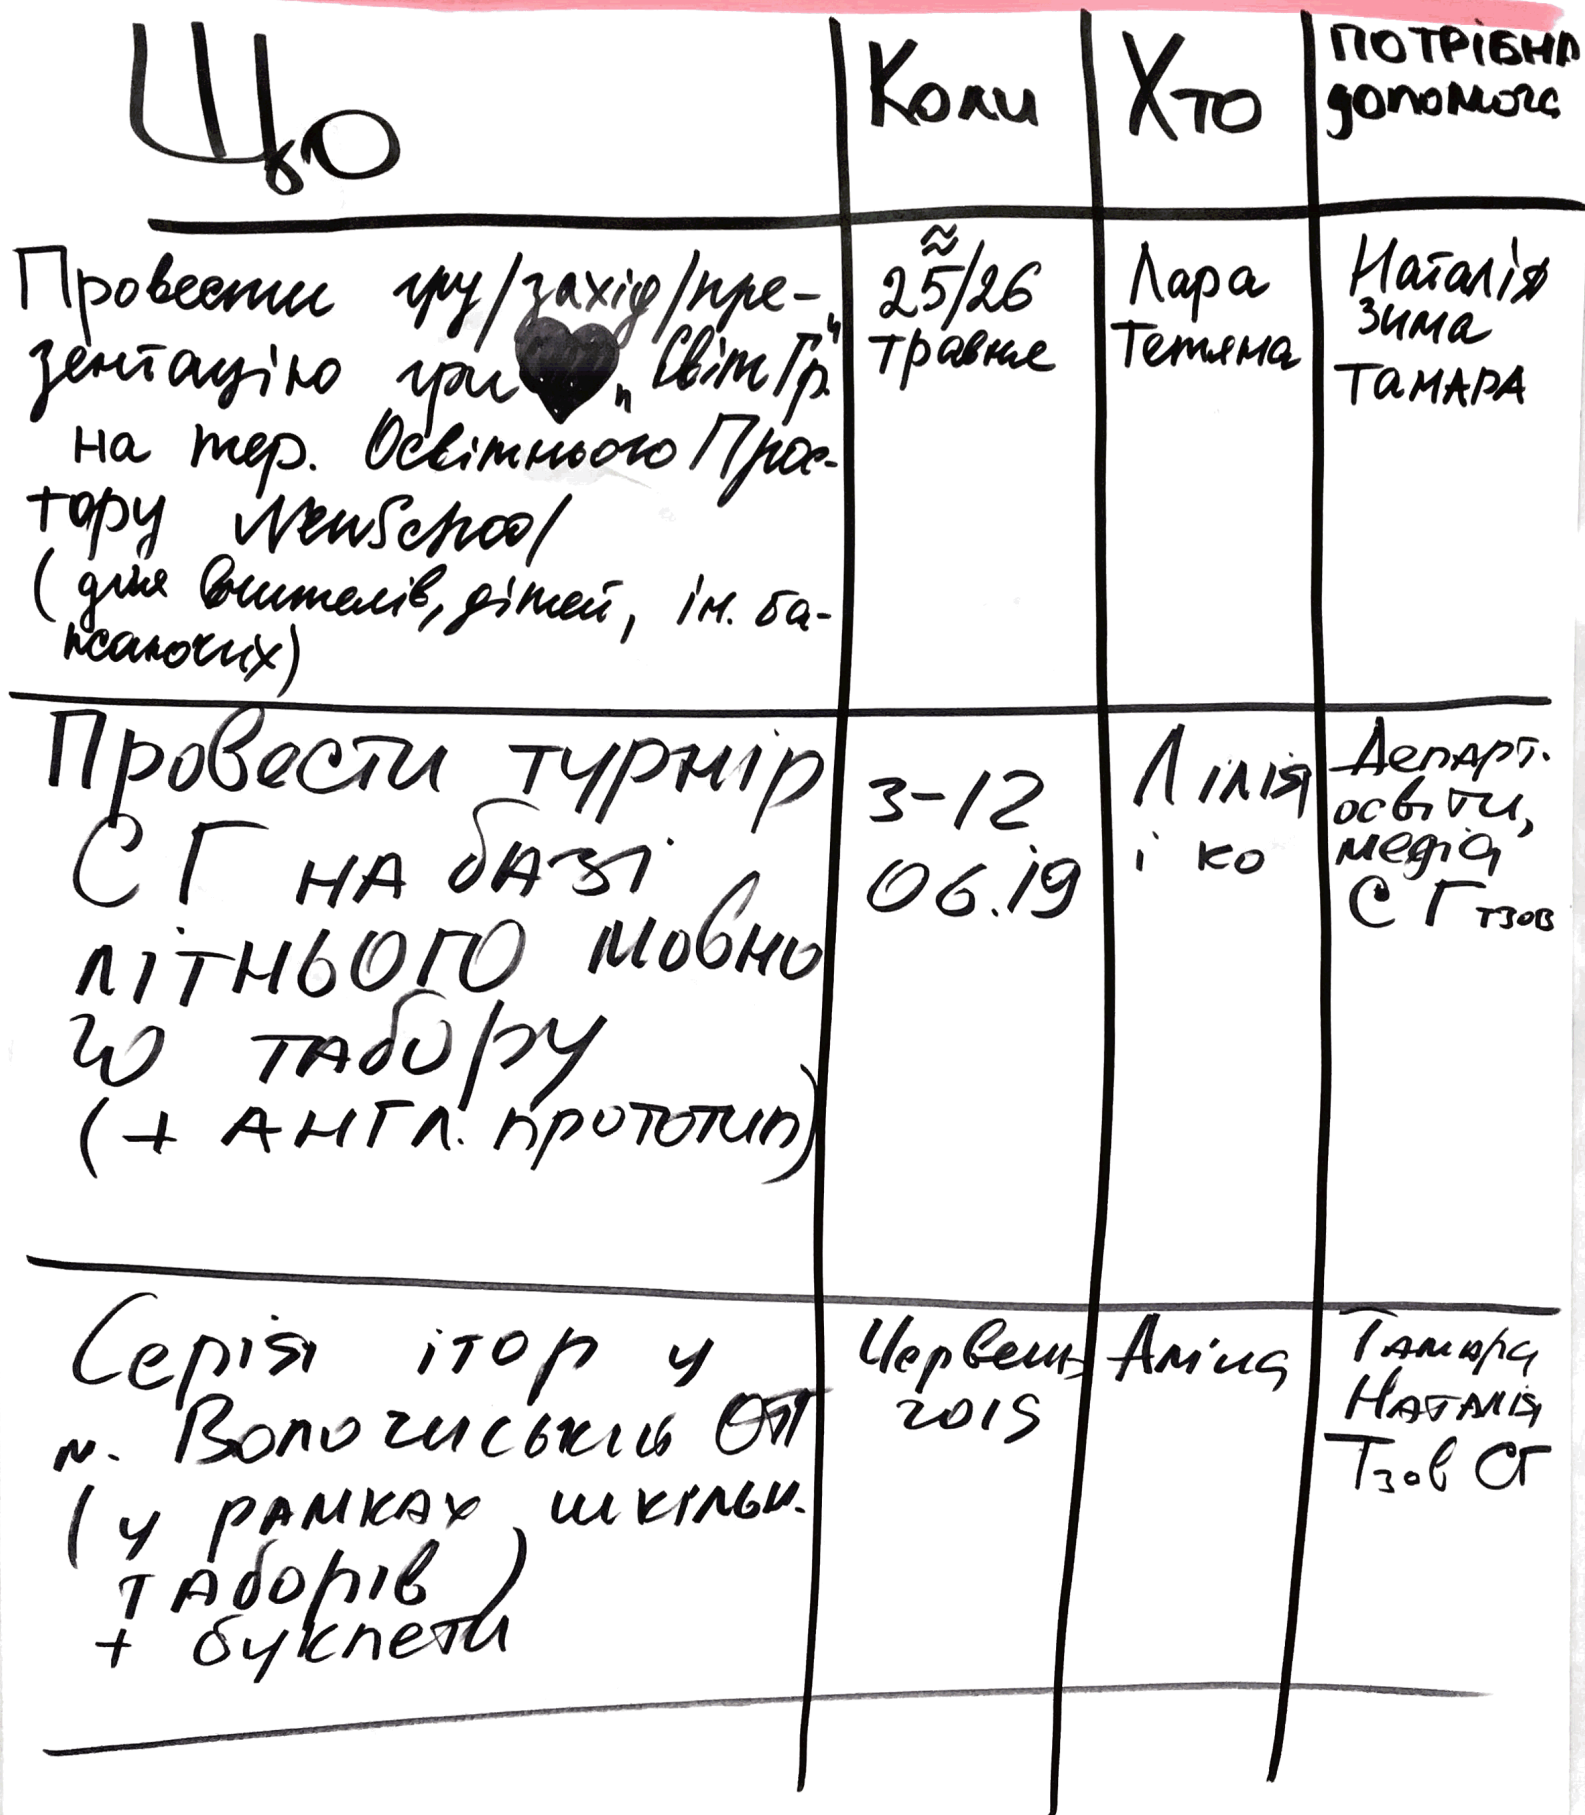 Що
Коли
Хто
Потрібна
допомога
Провести гру/захід/пре-
зентацію гри „Світ Гр."
на тер. Освітнього Прос-
тору NewSchool
(для вчителів, дітей, ін. ба-
жаючих)
≈
25/26
травня
Лара
Тетяна
Наталія
Зима
Тамара
Провести турнір
СГ на базі
літнього мовно
го табору
(+ англ. прототип)
3-12
06.19
Лілія
і ко
Департ.
освіти,
медіа
СГ тзов
Серія ігор у
м. Волочиськ ОТГ
(у рамках шкільн.
таборів)
+ буклети
Червень
2019
Аліна
Тамара
Наталія
Тзов СГ